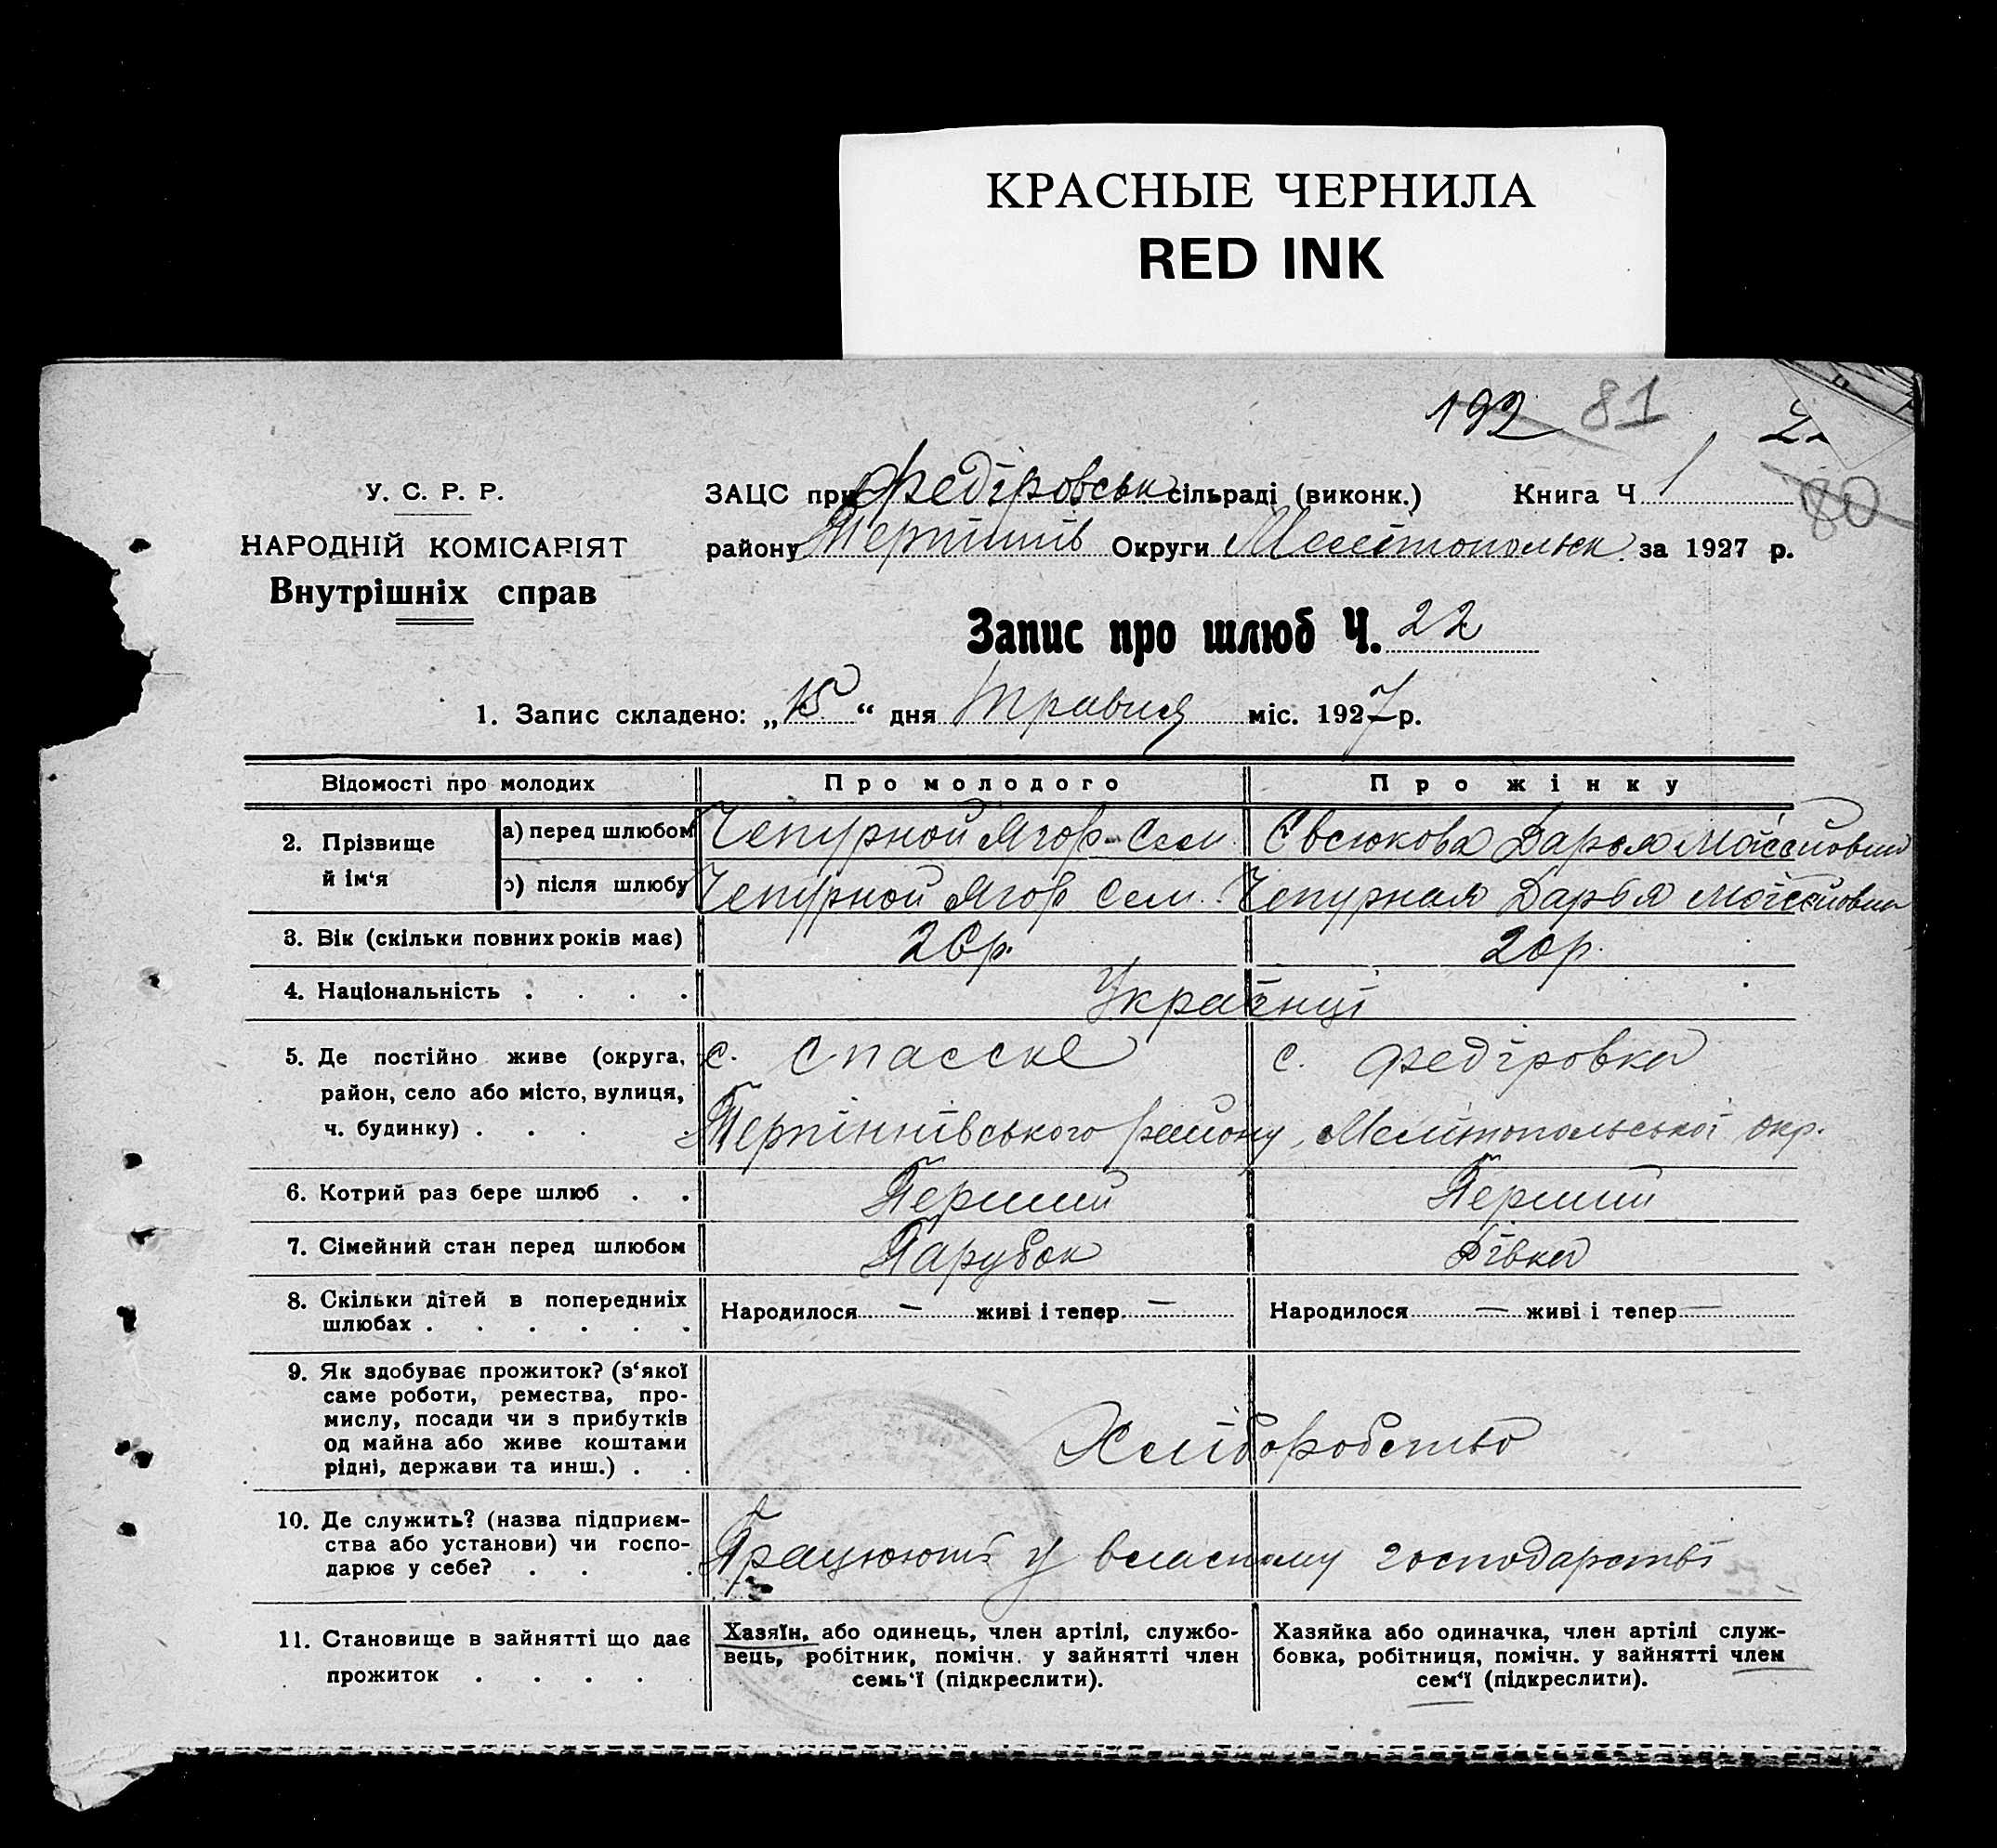 КРАСНЫЕ ЧЕРНИЛА
RED INK
192 81
80
У. С. Р. Р.
НАРОДНІЙ КОМІСАРІЯТ
Внутрішніх справ
ЗАЦС при Федіровськ сільраді (виконк.) Книга Ч 1
району Терпіннів Округи Мелітопольск за 1927 р.
Запис про шлюб Ч. 22
1. Запис складено: „15“ дня Травня міс. 1927 р.
Відомості про молодих Про молодого Про жінку
2. Прізвище й ім‘я
а) перед шлюбом Чепурной Ягор Сем. Євсюкова Дарья Мойсейовна
б) після шлюбу Чепурной Ягор Сем. Чепурная Дарья Мойсейовна
3. Вік (скільки повних років має) 26р. 20р.
4. Національність . . . . Українці
5. Де постійно живе (округа, с. Спасске с. Федіровка
район, село або місто, вулиця,
ч. будинку) . . . . Терпіннівського району, Мелітопольської окр.
6. Котрий раз бере шлюб . . Перший Перший
7. Сімейний стан перед шлюбом Парубок Дівка
8. Скільки дітей в попередниіх
шлюбах . . . . . . Народилося — живі і тепер — Народилося — живі і тепер —
9. Як здобуває прожиток? (з‘якої
саме роботи, ремества, про-
мислу, посади чи з прибутків
од майна або живе коштами
рідні, держави та инш.) . . Хліборобство
10. Де служить? (назва підприєм-
ства або установи) чи госпо-
дарює у себе? . . . Працюють у власному господарстві
11. Становище в зайнятті що дає
прожиток . . . .
Хазяїн, або одинець, член артілі, службо-
вець, робітник, помічн. у зайнятті член
семь‘ї (підкреслити).
Хазяйка або одиначка, член артілі служ-
бовка, робітниця, помічн. у зайнятті член
сем‘ї (підкреслити).